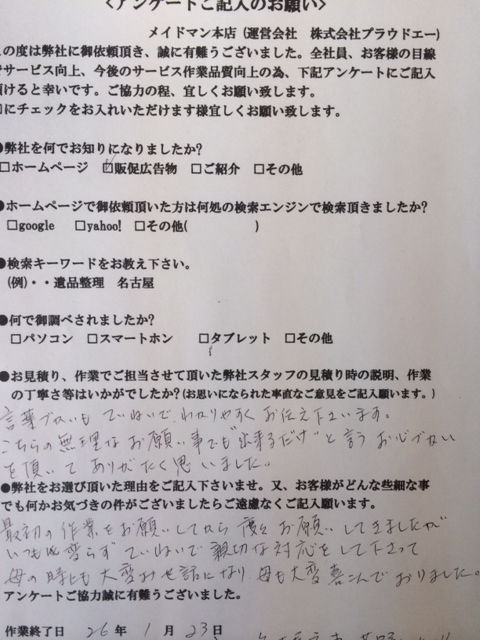 <アンケートご記入のお願い>
メイドマン本店 (運営会社 株式会社プラウドエー)
の度は弊社に御依頼頂き、誠に有難うございました。全社員、お客様の目線
サービス向上、今後のサービス作業品質向上の為、下記アンケートにご記入
頂けると幸いです。ご協力の程、宜しくお願い致します。
□にチェックをお入れいただけます様宜しくお願い致します。
●弊社を何でお知りになりましたか?
□ホームページ ☑販促広告物 □ご紹介 □その他
●ホームページで御依頼頂いた方は何処の検索エンジンで検索頂きましたか?
□google □yahoo! □その他( )
●検索キーワードをお教え下さい。
(例)・・遺品整理 名古屋
●何で御調べされましたか?
□パソコン □スマートホン □タブレット □その他
●お見積り、作業でご担当させて頂いた弊社スタッフの見積り時の説明、作業
の丁寧さ等はいかがでしたか?(お思いになられた事直なご意見をご記入願います。)
言葉づかいもていねいでわかりやすくお伝え下います。
こちらの無理なお願い事でも"出来るだけ"と言うお心づかい
を頂いてありがたく思いました。
●弊社をお選び頂いた理由をご記入下さいませ。又、お客様がどんな些細な事
でも何かお気づきの件がございましたらご遠慮なくご記入願います。
最初の作業をお願いしてから度々お願いしてきましたが
いつも変らずていねいで親切な対応をして下さって
母の時にも大変お世話になり母も大変喜こんでおりました。
アンケートご協力誠に有難うございました。
作業終了日 26年 1月 23日